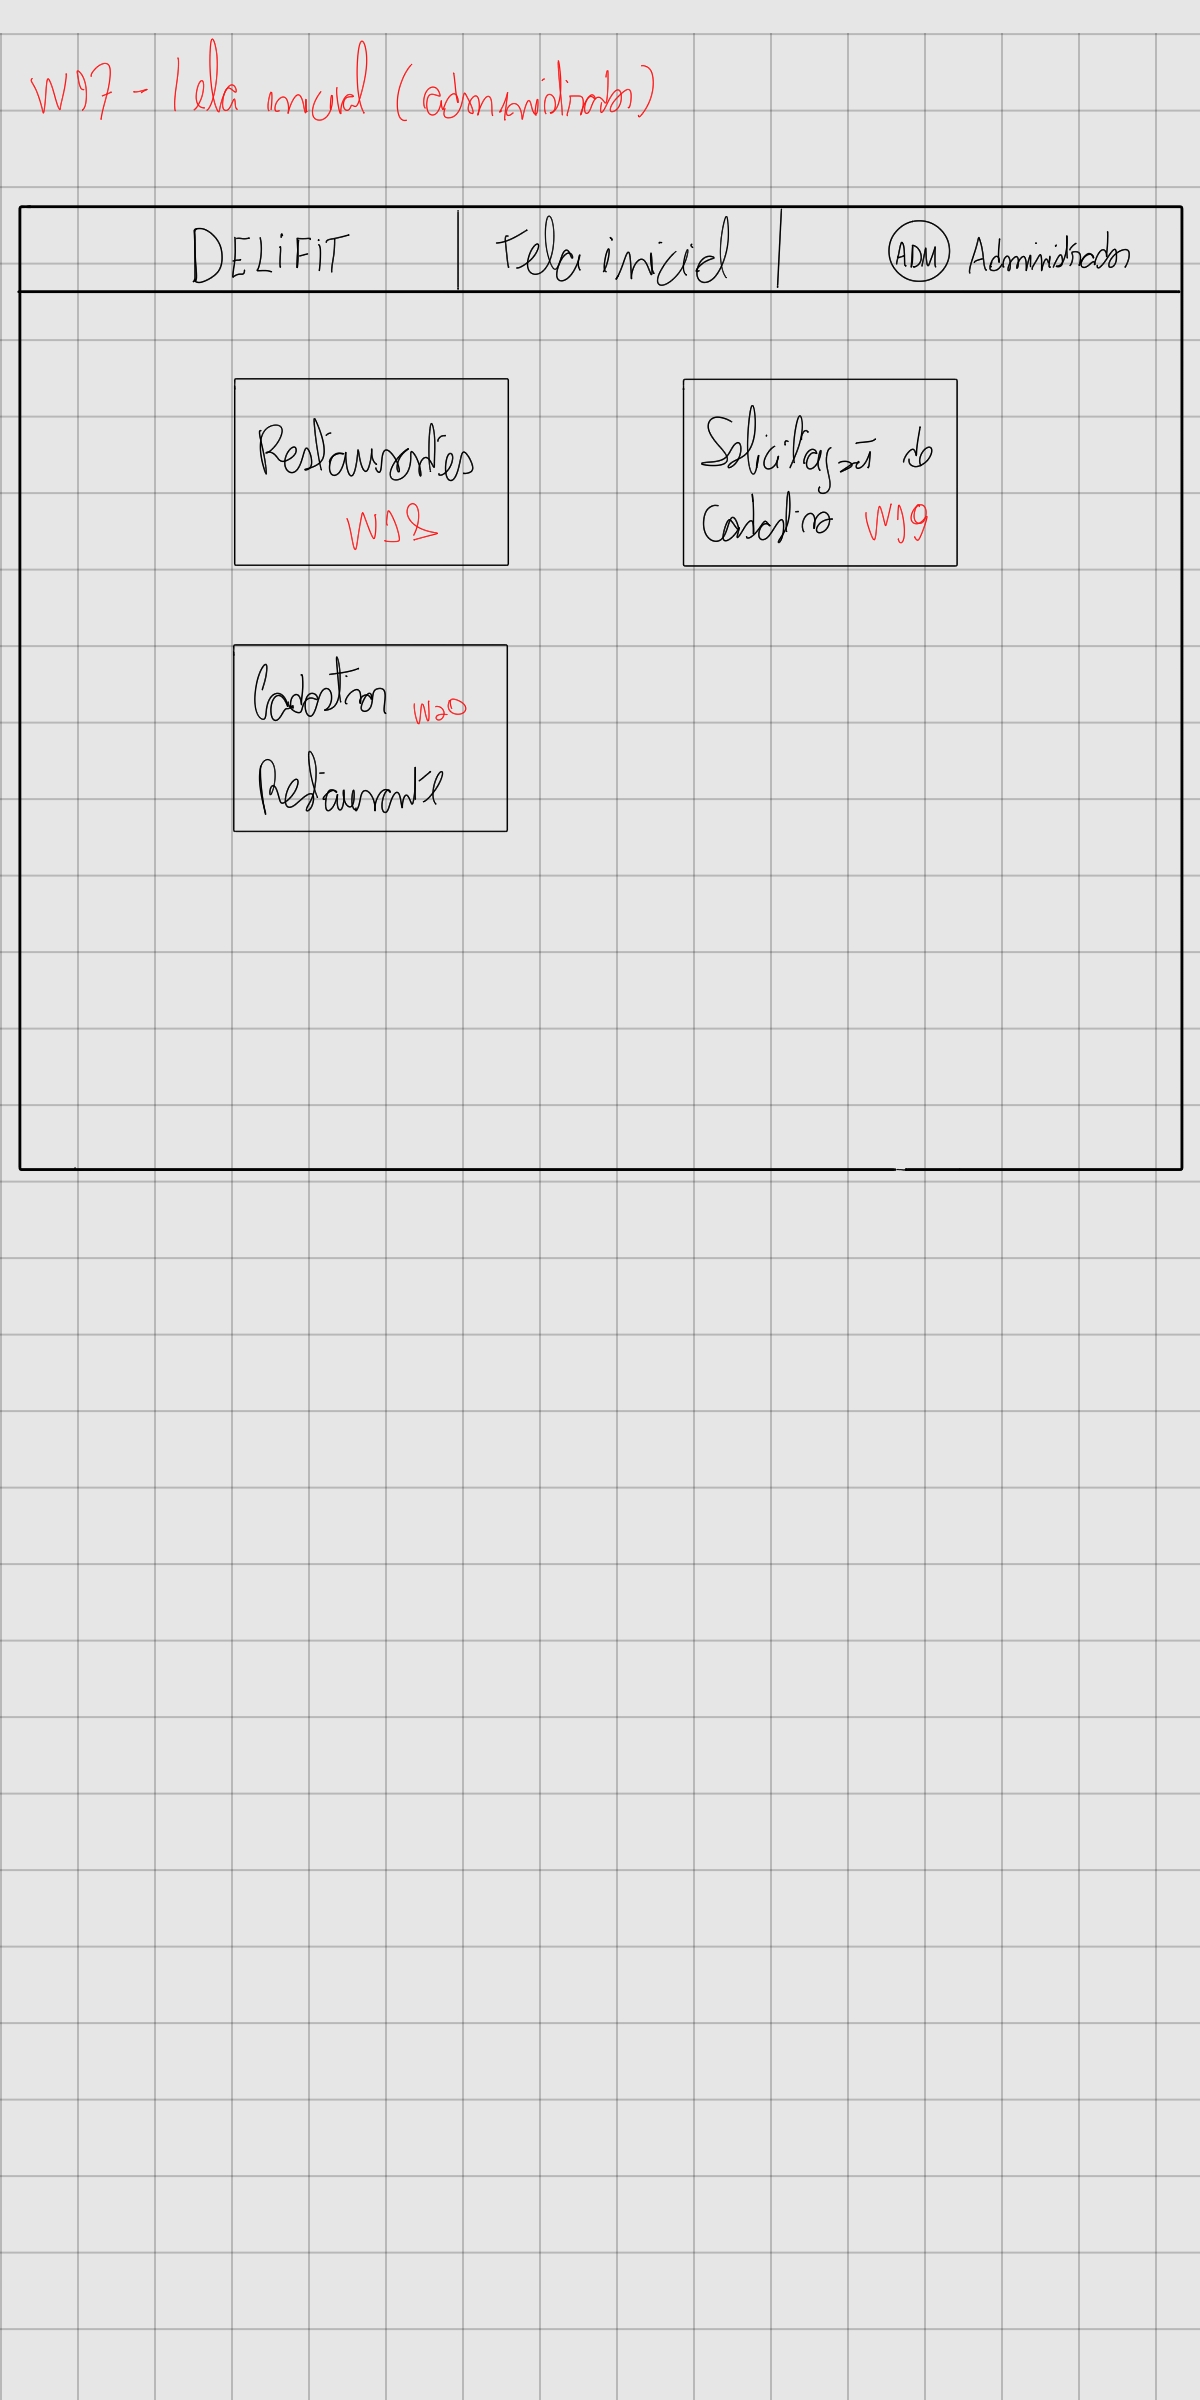 W17 - Tela inicial (administrador)
DELIFIT Tela inicial ADM Administrador
Restaurantes
W18
Solicitação de
Cadastro W19
Cadastrar W20
Restaurante